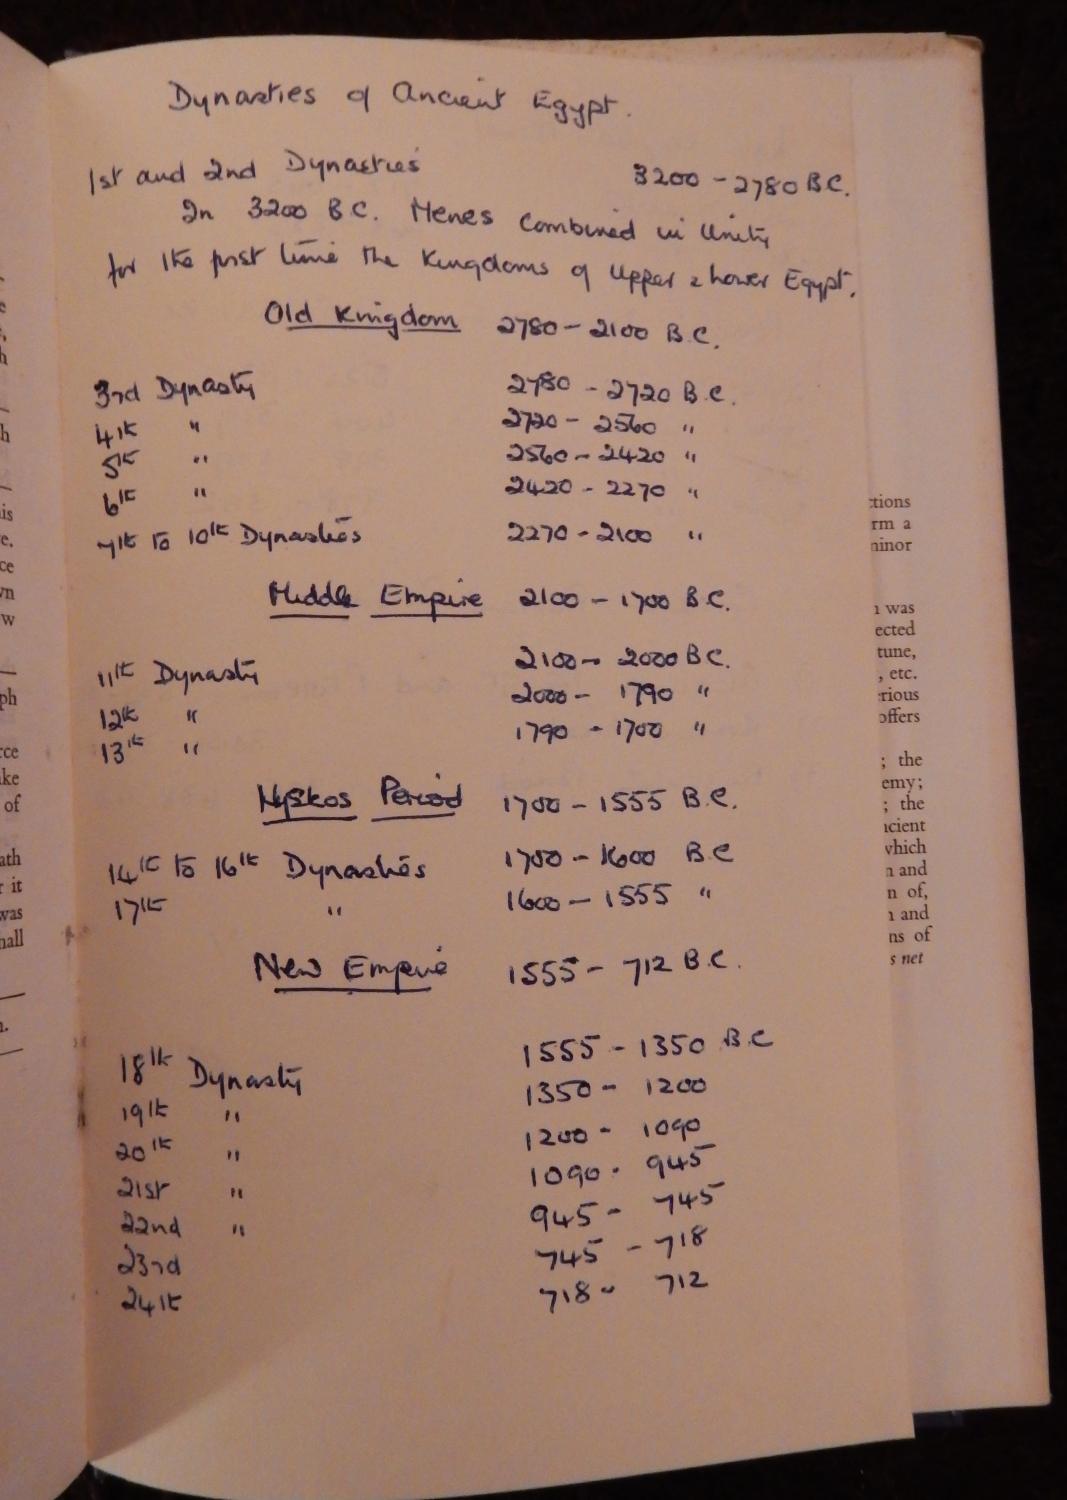 Dynasties of Ancient Egypt.
1st and 2nd Dynasties 3200 - 2780 B.C.
In 3200 B.C. Menes combined in Unity
for the first time the Kingdoms of Upper & Lower Egypt.
Old Kingdom 2780 - 2100 B.C.
3rd Dynasty 2780 - 2720 B.C.
4th " 2720 - 2560 "
5th " 2560 - 2420 "
6th " 2420 - 2270 "
7th to 10th Dynasties 2270 - 2100 "
Middle Empire 2100 - 1700 B.C.
11th Dynasty 2100 - 2000 B.C.
12th " 2000 - 1790 "
13th " 1790 - 1700 "
Hyskos Period 1700 - 1555 B.C.
14th to 16th Dynasties 1700 - 1600 B.C
17th " 1600 - 1555 "
New Empire 1555 - 712 B.C.
18th Dynasty 1555 - 1350 B.C
19th " 1350 - 1200
20th " 1200 - 1090
21st " 1090 - 945
22nd " 945 - 745
23rd 745 - 718
24th 718 - 712
ctions
rm a
minor
was
ected
tune,
, etc.
rious
offers
; the
emy;
; the
ncient
which
and
n of,
and
ns of
s net
h
is
e.
ce
wn
w
ph
rce
ke
of
ath
r it
was
hall